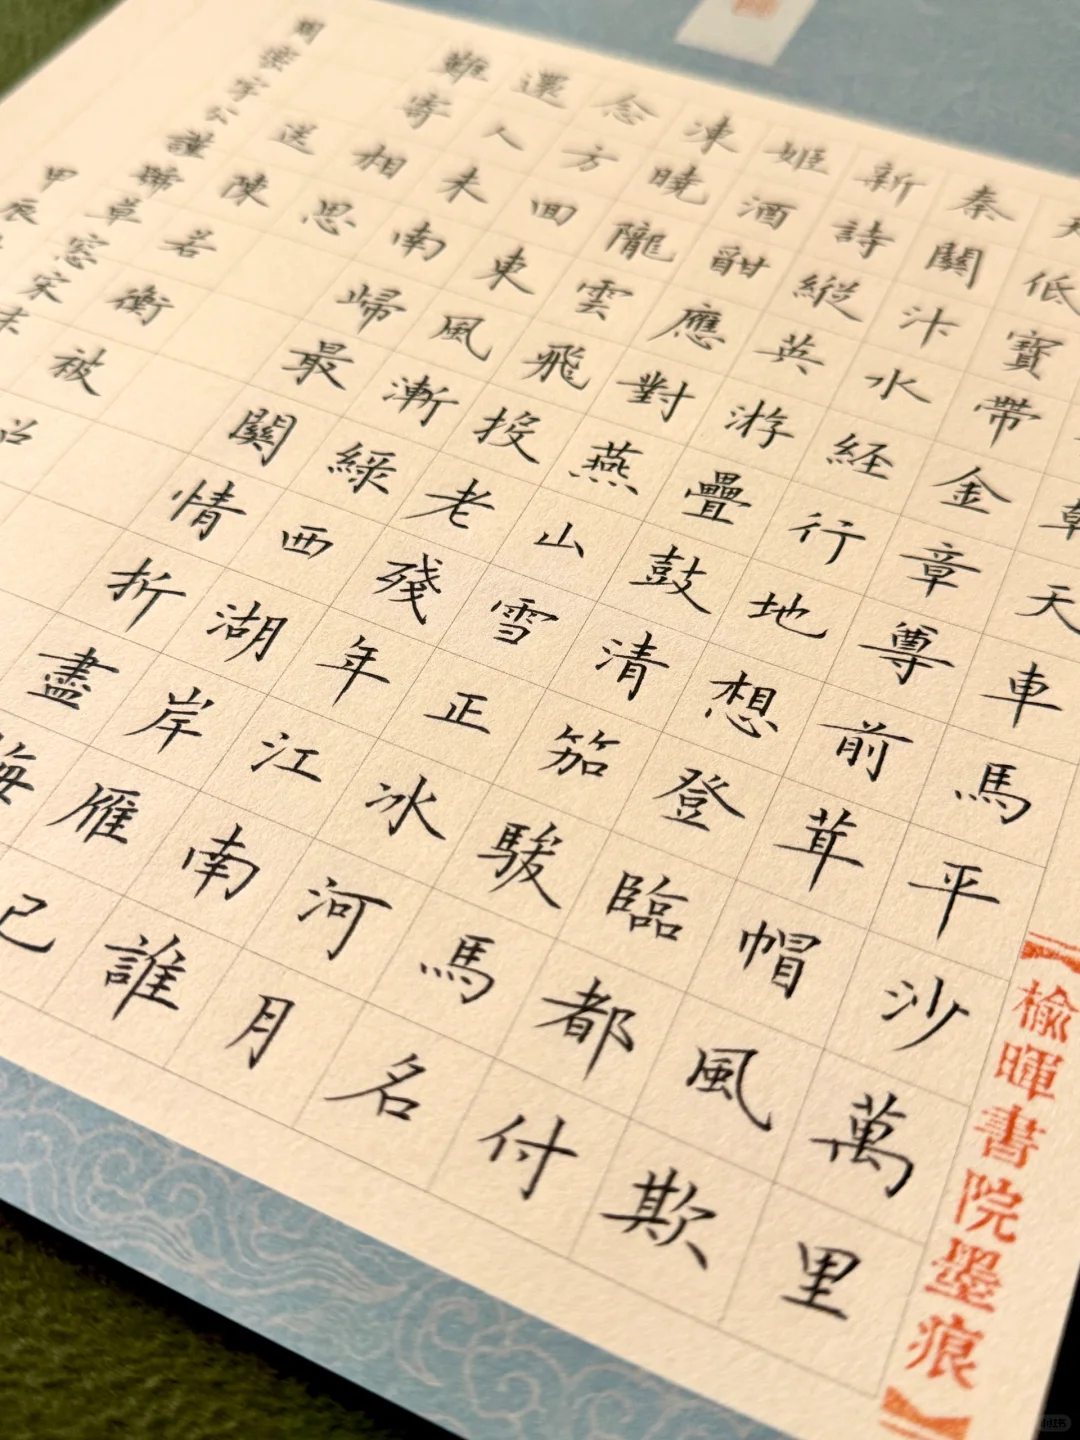 朝天車馬平沙萬里
天低寶帶金章尊前茸帽風欺
秦關汴水経行地想登臨都付
新詩縱英游疊鼓清笳駿馬名
姬酒酣應對燕山雪正冰河月
凍曉隴雲飛投老殘年江南誰
念方囬東風漸緑西湖岸雁已
還人未南歸最關情折盡梅
難寄相思
送陳若衡被召
周密字公謹號草窓宋末
甲辰
榆暉書院墨痕